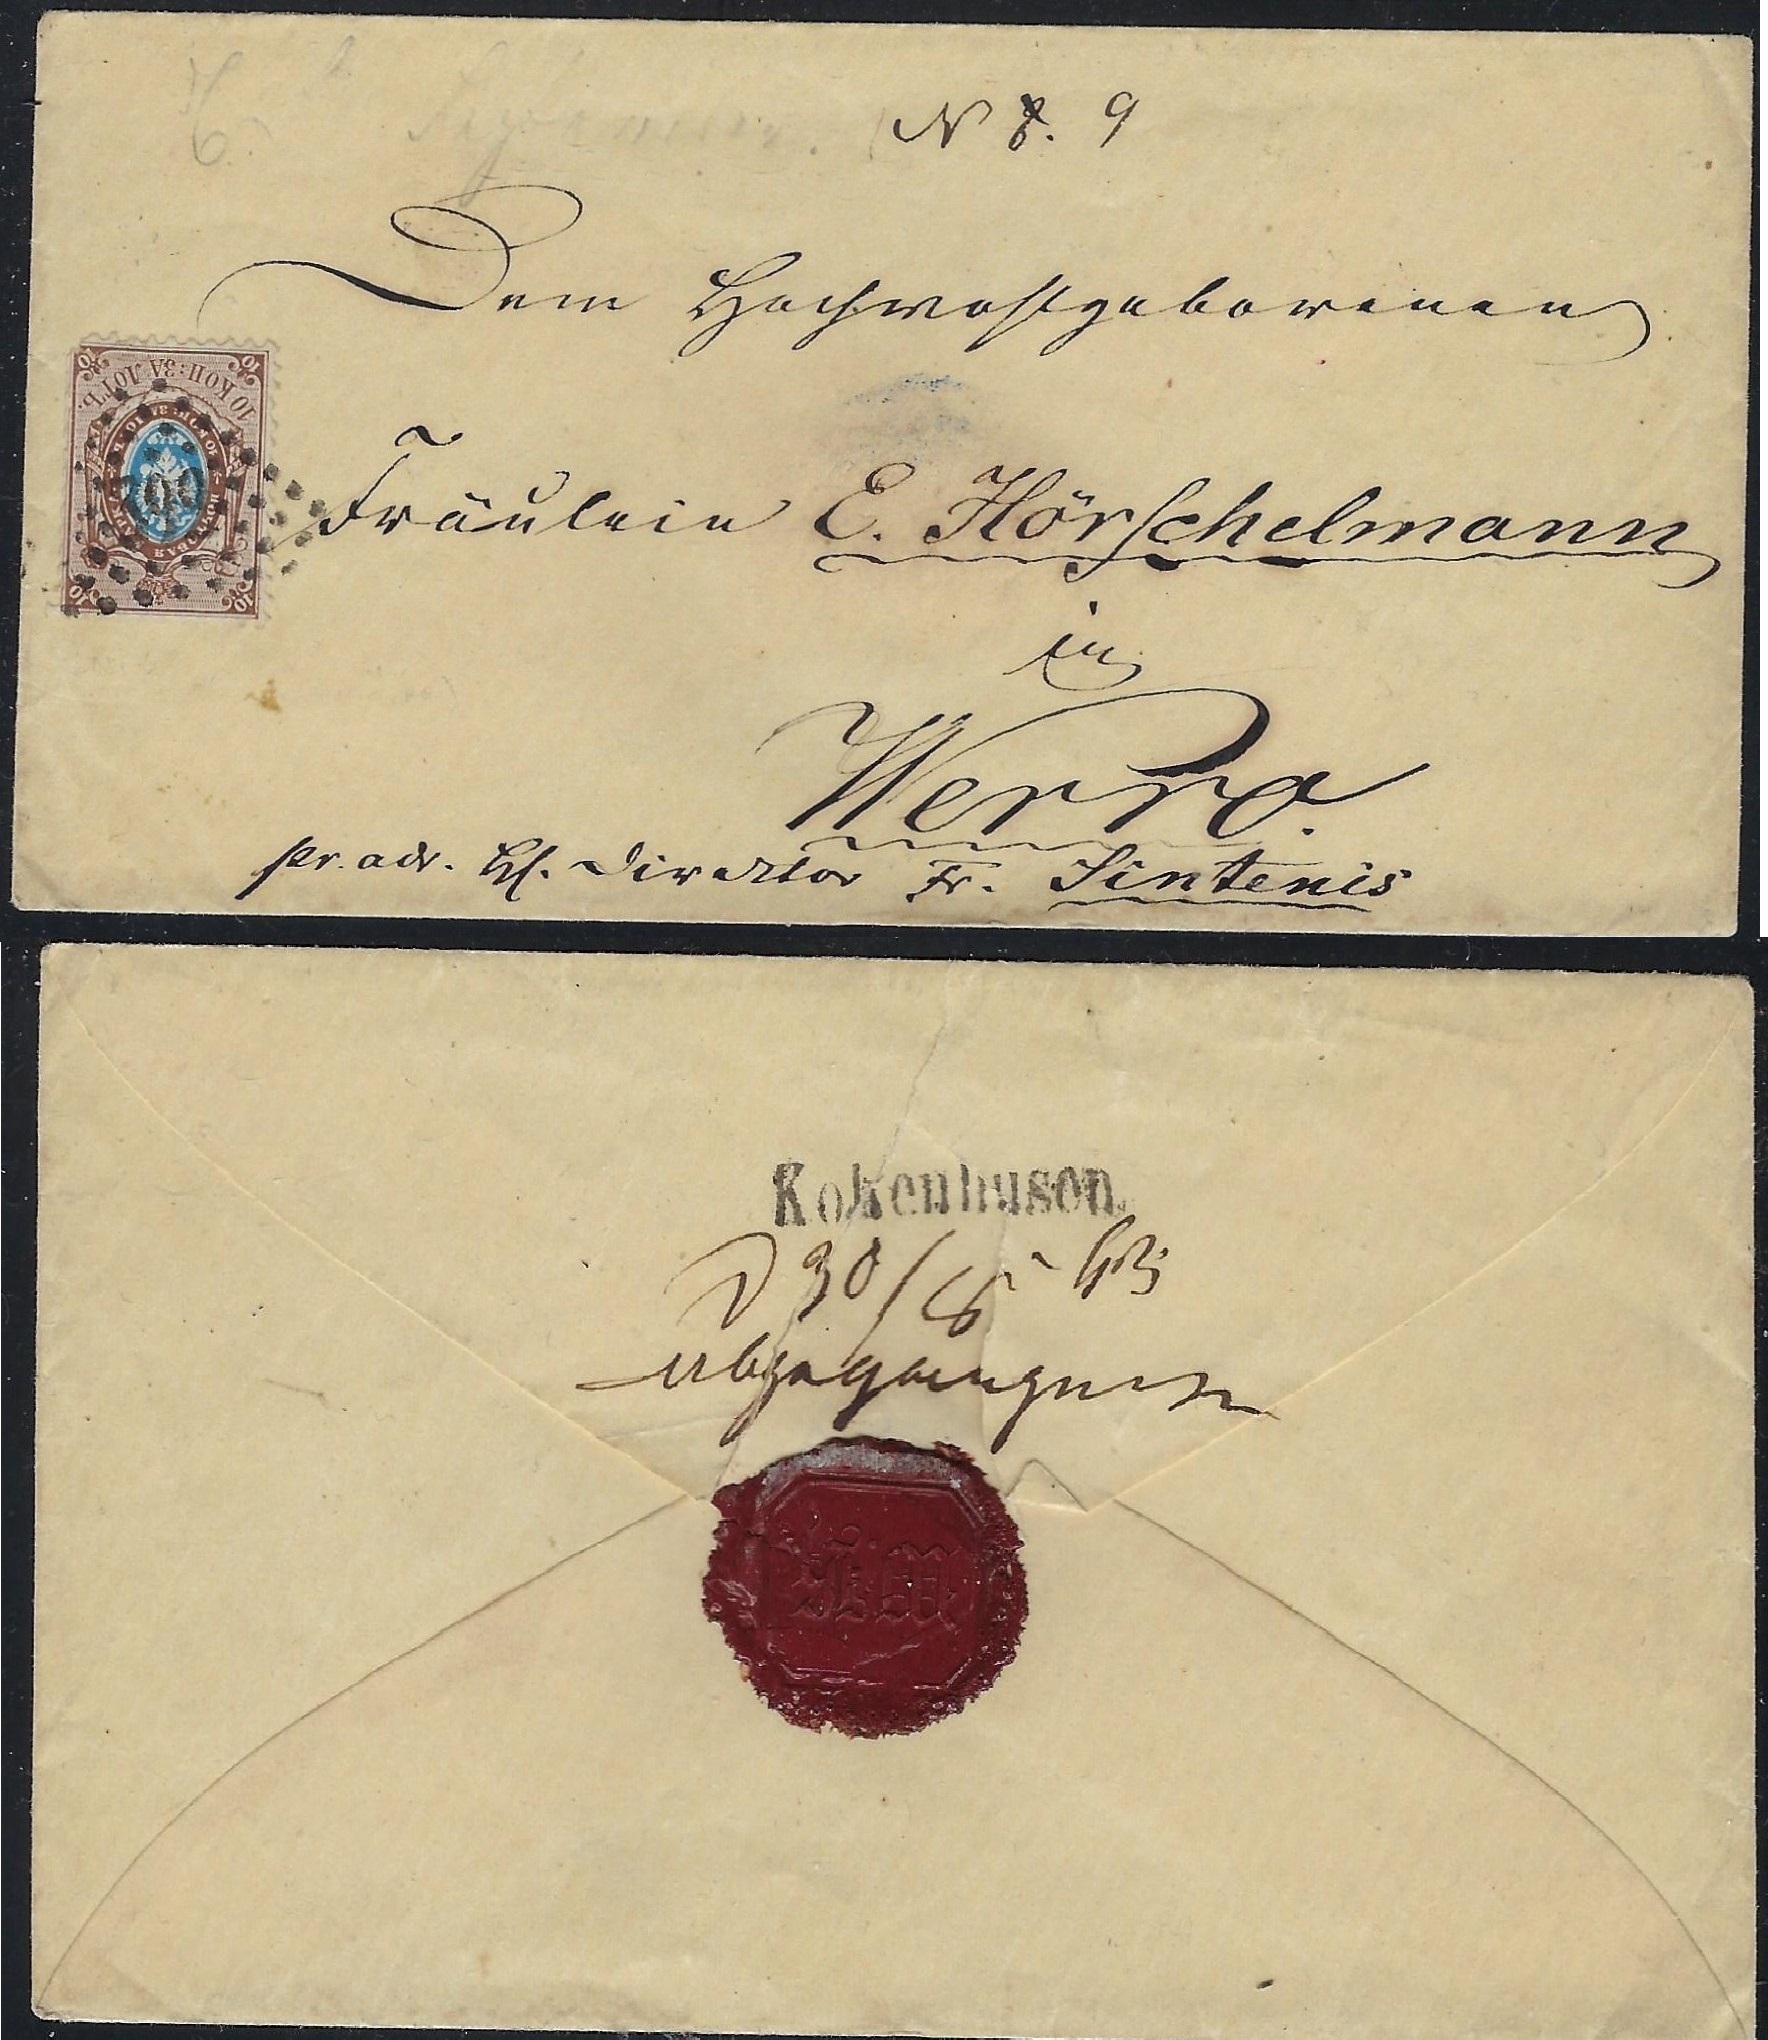 N 8. 9
Dem Hochwohlgeborenen
Fräulein E. Hörschelmann
in
Werro.
pr. adr. H. Director Fr. Sintenis
10 КОП: ЗА ЛОТЪ.
10
10
10
10
Kokenhusen.
30/
abgegangen